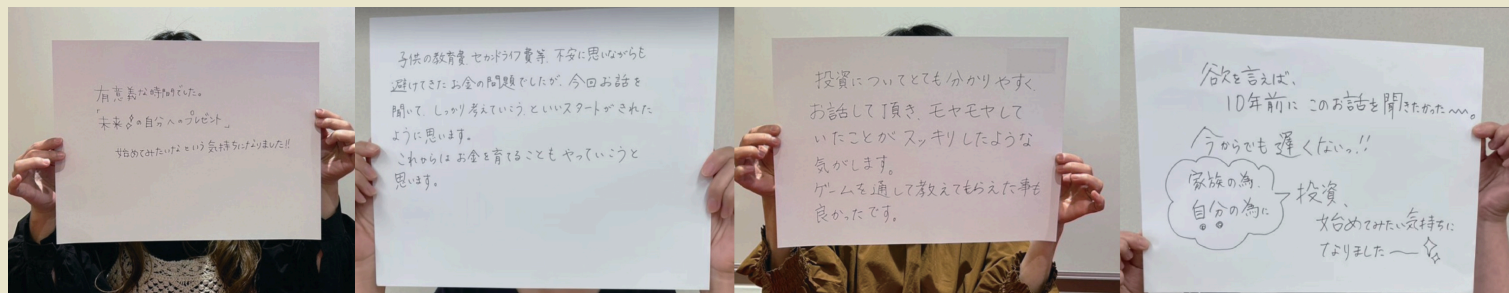 有意義な時間でした。
「未来の自分へのプレゼント」
始めてみたいなという気持ちになりました!!
子供の教育費、セカンドライフ費等、不安に思いながらも
避けてきたお金の問題でしたが、今回お話を
聞いて、しっかり考えていこう、といいスタートがきれた
ように思います。
これからはお金を育てることもやっていこうと
思います。
投資についてとても分かりやすく、
お話して頂き、モヤモヤして
いたことがスッキリしたような
気がします。
ゲームを通して教えてもらえた事も
良かったです。
欲を言えば、
10年前に このお話を聞きたかった〜〜。
今からでも遅くないっ!!
家族の為、
自分の為に
投資、
始めてみたい気持ちに
なりました〜